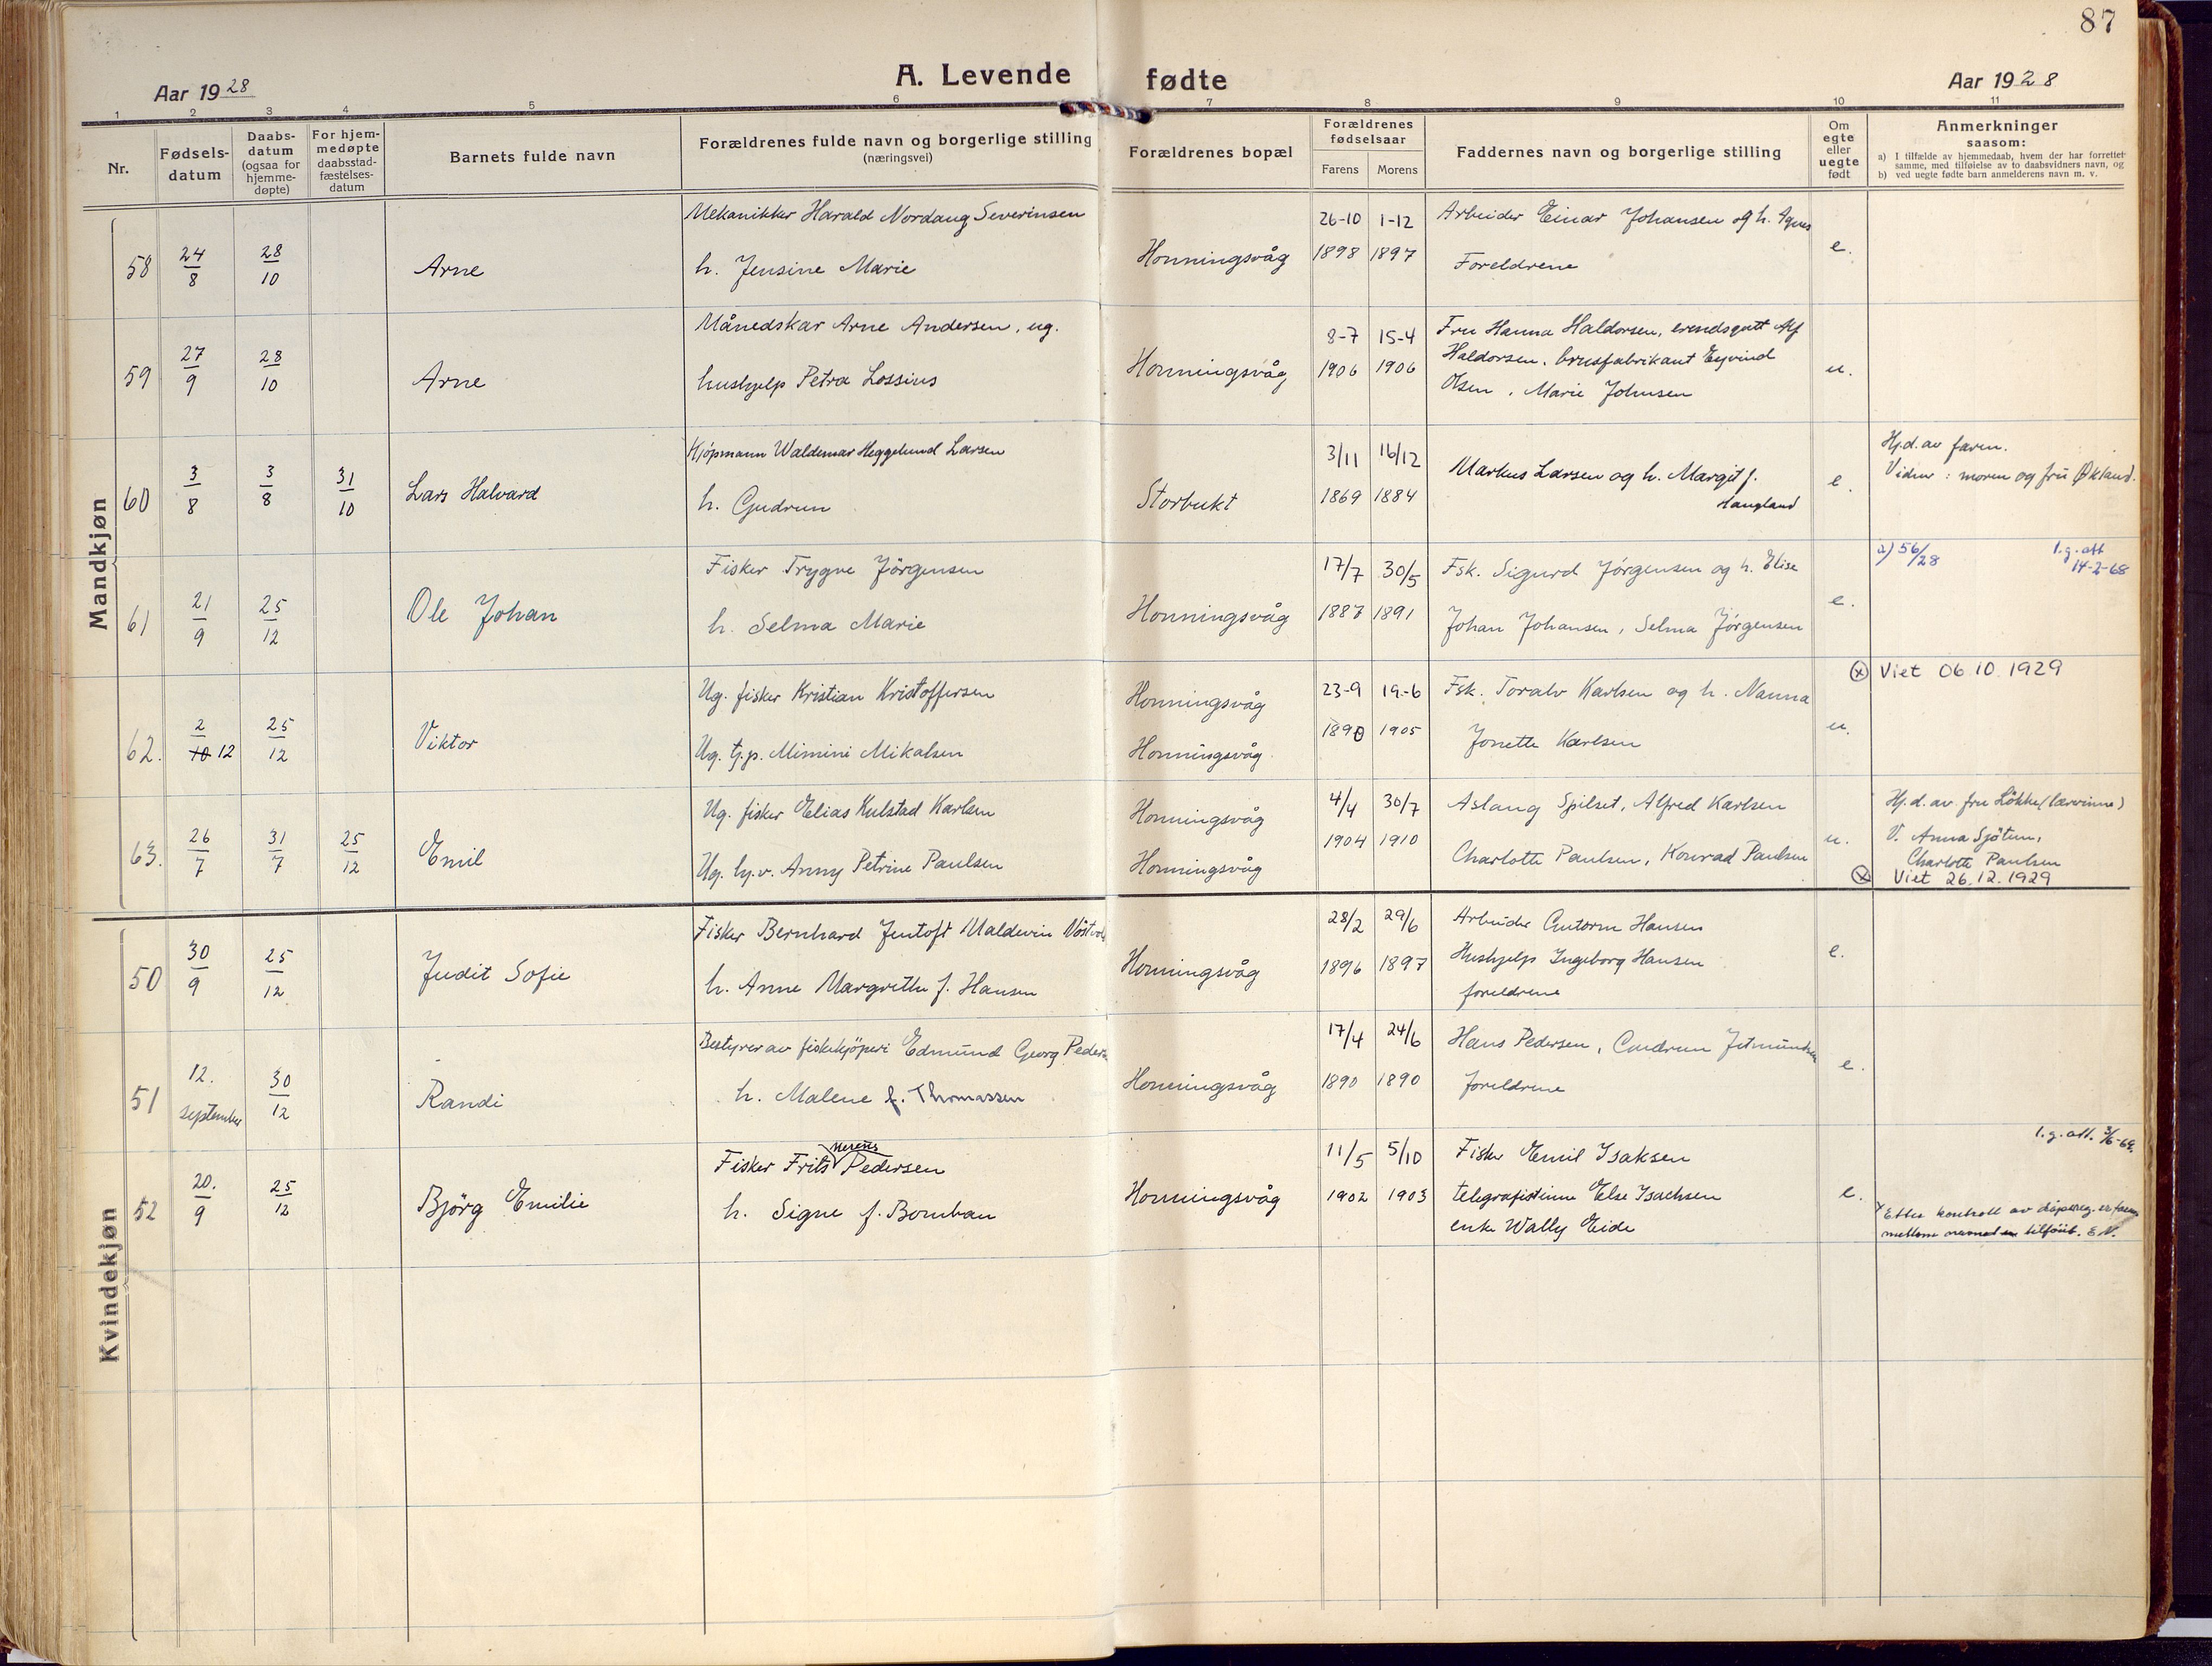 87
A. Levende fødte
Aar 1928
Aar 1928
1 2 3 4 5 6 7 8 9 10 11
Nr.
Fødsels-
datum
Daabs-
datum
(ogsaa for
hjemme-
døpte)
For hjem-
medøpte
daabsstad-
fæstelses-
datum
Barnets fulde navn
Forældrenes fulde navn og borgerlige stilling
(næringsvei)
Forældrenes bopæl
Forældrenes
fødselsaar
Farens Morens
Faddernes navn og borgerlige stilling
Om
egte
eller
uegte
født
Anmerkninger
saasom:
a) I tilfælde av hjemmedaab, hvem der har forrettet
samme, med tilføielse av to daabsvidners navn, og
b) ved uegte fødte barn anmelderens navn m. v.
Mandkjøn
58 24/8 28/10 Arne
Mekanikker Harald Nordaug Severinsen
h. Jensine Marie
Honningsvåg
26-10 1-12
1898 1897
Arbeider Einar Johansen og h. Agnes
Foreldrene
e.
59 27/9 28/10 Arne
Månedskar Arne Andersen, ug.
hushjelp Petra Lossius
Honningsvåg
8-7 15-4
1906 1906
Fru Hanna Haldorsen, erendsgutt Alf
Haldorsen, brusfabrikant Eyvind
Olsen, Marie Johnsen
u.
60 3/8 3/8 31/10 Lars Halvard
Kjöpmann Waldemar Heggelund Larsen
h. Gudrun
Storbukt
3/11 16/12
1869 1884
Markus Larsen og h. Margit f.
Haugland
e.
Hj.d. av faren.
Vidner: moren og fru Økland.
61 21/9 25/12 Ole Johan
Fisker Trygve Jörgensen
h. Selma Marie
Honningsvåg
17/7 30/5
1887 1891
Fsk. Sigurd Jörgensen og h. Elise
Johan Johansen, Selma Jörgensen
e.
a) 56/28 l.g. att
14-2-68
62. 2/10 12 25/12 Viktor
Ug. fisker Kristian Kristoffersen
Ug. tj.p. Mimini Mikalsen
Honningsvåg
Honningsvåg
23-9 19-6
1890 1905
Fsk. Toralv Karlsen og h. Nanna
Jonette Karlsen
u.
ⓧ Viet 06.10.1929
63. 26/7 31/7 25/12 Emil
Ug. fisker Elias Kulstad Karlsen
Ug. hj.v. Anny Petrine Paulsen
Honningsvåg
Honningsvåg
4/4 30/7
1904 1910
Aslaug Spilset, Alfred Karlsen
Charlotte Paulsen, Konrad Paulsen
u.
Hj.d. av fru Lökke (lærerinne)
V. Anna Sjötun,
Charlotte Paulsen
ⓧ Viet 26.12.1929
Kvindekjøn
50 30/9 25/12 Judit Sofie
Fisker Bernhard Jentoft Maldevin
h. Anne Margrethe f. Hansen
Honningsvåg
28/2 29/6
1896 1897
Arbeider Gutorm Hansen
Hushjelp Ingeborg Hansen
foreldrene
e.
51 12. september 30/12 Randi
Bestyrer av fiskekjöperi Edmund Georg Pedersen
h. Malene f. Thomassen
Honningsvåg
17/4 24/6
1890 1890
Hans Pedersen, Gudrun
foreldrene
e.
52 20./9 25/12 Björg Emilie
Fisker Frits Merens Pedersen
h. Signe f. Bomban
Honningsvåg
11/5 5/10
1902 1903
Fisker Emil Isaksen
telegrafistinne Else Isachsen
enke Wally Eide
e.
l.g. att. 3/6-69.
x Etter kontroll av dåpsreg. er farens
mellom navnet tilföiet. E N.